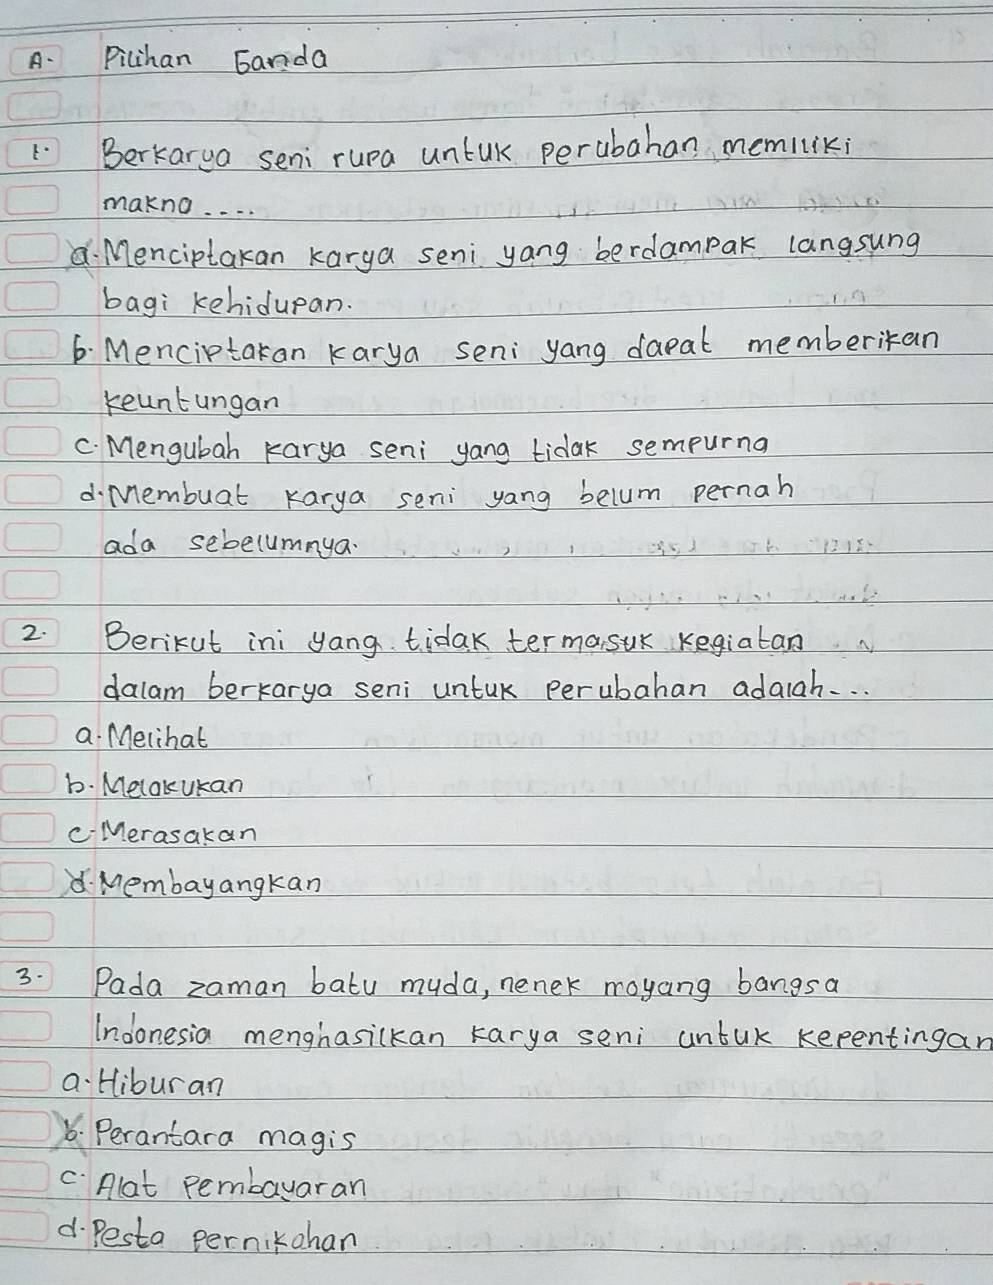 A. Pilihan Ganda
1. Berkarya seni rupa untuk perubahan memiliki
makna....
a. Menciptakan karya seni yang berdampak langsung
bagi kehidupan.
b. Menciptakan karya seni yang dapat memberikan
keuntungan
c. Mengubah karya seni yang tidak sempurna
d. Membuat karya seni yang belum pernah
ada sebelumnya.
2. Berikut ini yang tidak termasuk kegiatan
dalam berkarya seni untuk perubahan adalah...
a. Melihat
b. Melakukan
c. Merasakan
d. Membayangkan
3. Pada zaman batu muda, nenek moyang bangsa
Indonesia menghasilkan karya seni untuk kepentingan
a. Hiburan
b. Perantara magis
c. Alat pembayaran
d. Pesta pernikahan